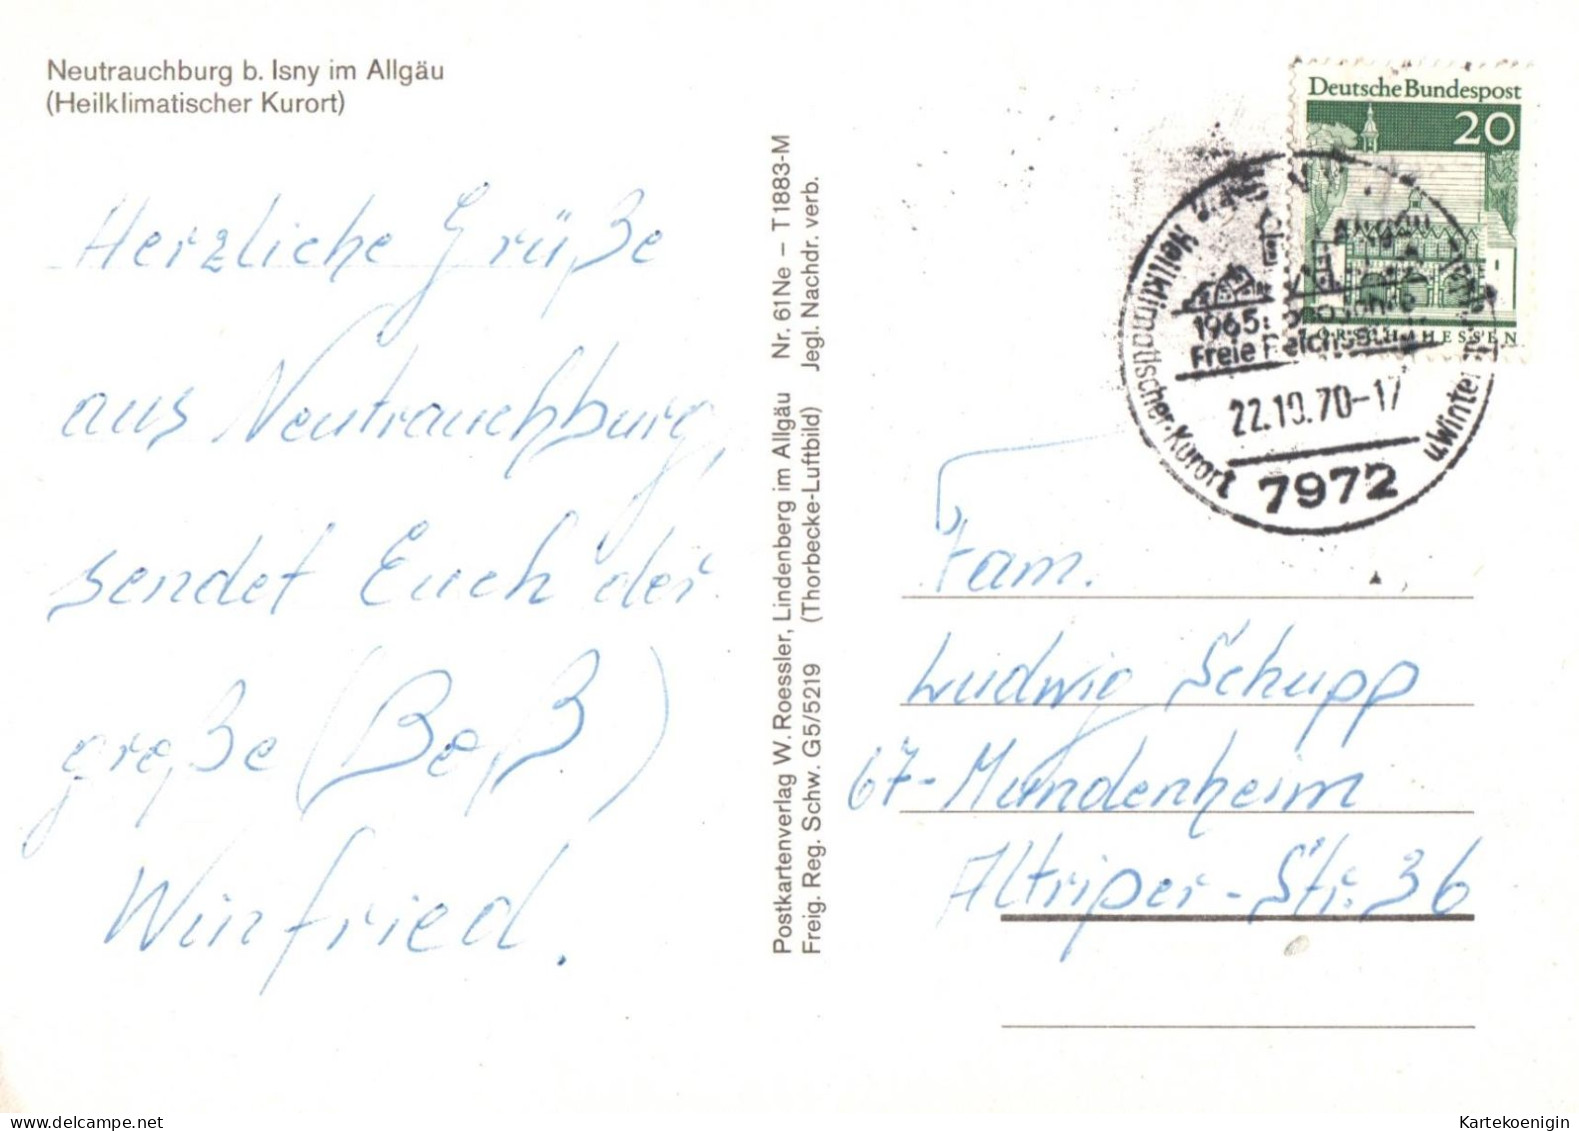 Neutrauchburg b. Isny im Allgäu
(Heilklimatischer Kurort)
Herzliche Grüße
aus Neutrauchburg,
sendet Euch der
große (Boß)
Winfried.
Postkartenverlag W. Roessler, Lindenberg im Allgäu Nr. 61Ne – T 1883-M
Freig. Reg. Schw. G5/5219 (Thorbecke-Luftbild) Jegl. Nachdr. verb.
Deutsche Bundespost
20
LORSCH/HESSEN
Heilklimatischer-Kurort
u.Winter
1965:
Freie Reichsst
22.10.70-17
7972
Fam.
Ludwig Schupp
67-Mundenheim
Altriper-Str. 36
Kartekoenigin